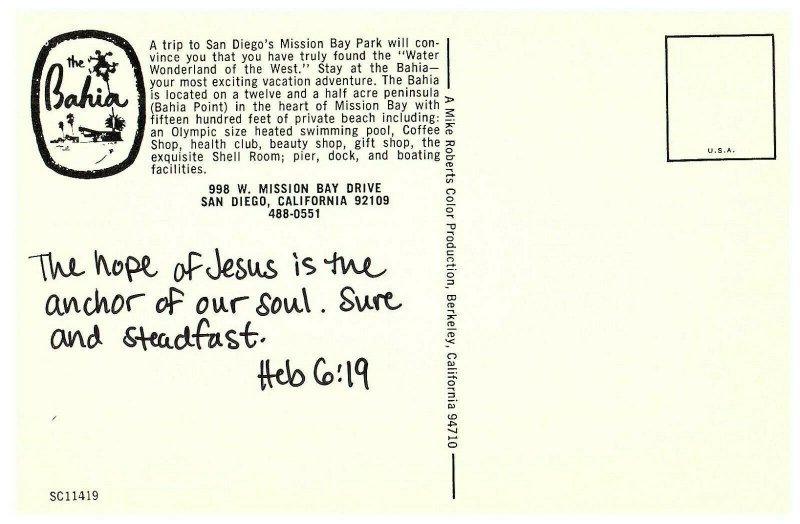 the
Bahia
A trip to San Diego's Mission Bay Park will con-
vince you that you have truly found the "Water
Wonderland of the West." Stay at the Bahia—
your most exciting vacation adventure. The Bahia
is located on a twelve and a half acre peninsula
(Bahia Point) in the heart of Mission Bay with
fifteen hundred feet of private beach including:
an Olympic size heated swimming pool, Coffee
Shop, health club, beauty shop, gift shop, the
exquisite Shell Room; pier, dock, and boating
facilities.
998 W. MISSION BAY DRIVE
SAN DIEGO, CALIFORNIA 92109
488-0551
The hope of Jesus is the
anchor of our soul. Sure
and steadfast.
Heb 6:19
SC11419
A Mike Roberts Color Production, Berkeley, California 94710
U.S.A.